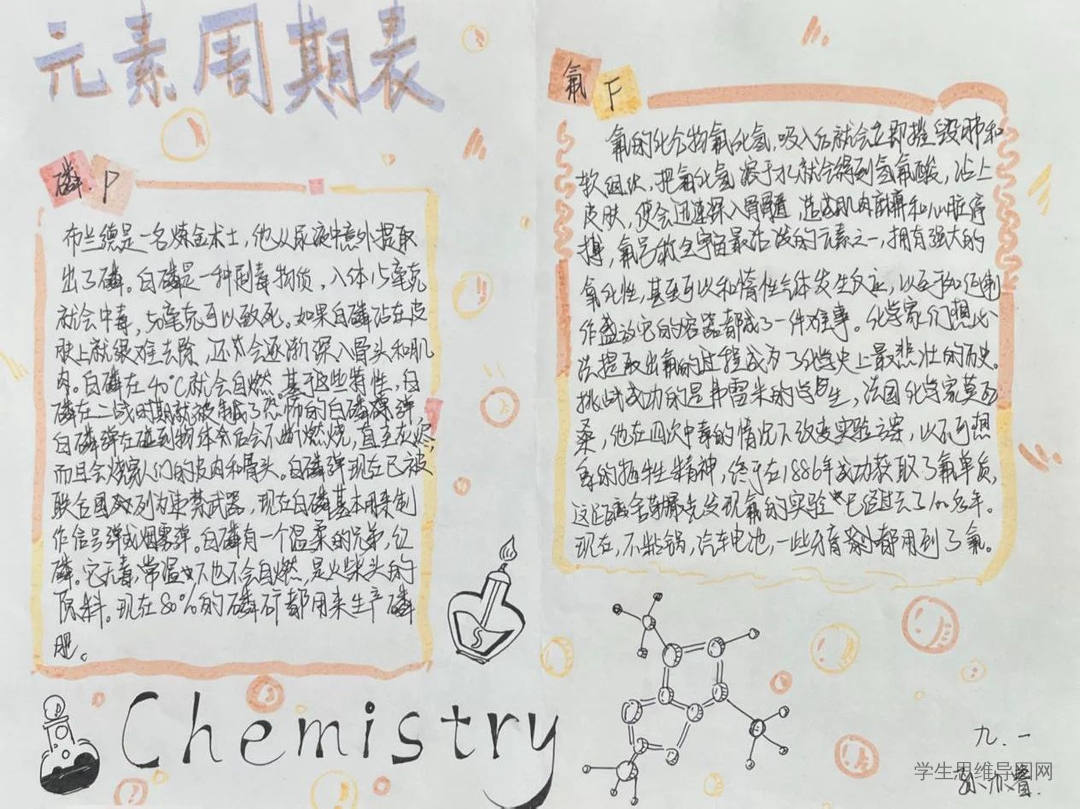 元素周期表
磷.P
布兰德是一名炼金术士,他从尿液中意外提取
出了磷。白磷是一种剧毒物质,入体15毫克
就会中毒,50毫克可以致死。如果白磷沾在皮
肤上就很难去除,还会逐渐深入骨头和肌
肉。白磷在40℃就会自燃。基于这些特性,白
磷在二战时期就被制成了恐怖的白磷弹
白磷弹在碰到物体后会不断燃烧,直至灰烬,
而且会烧穿人们的皮肉和骨头。白磷弹现在已被
联合国列为禁武器,现在白磷基本用来制
作信号弹或烟雾弹。白磷有一个温柔的兄弟,红
磷。它无毒,常温下也不会自燃,是火柴头的
原料。现在80%的磷矿都用来生产磷
肥。
Chemistry
氟 F
氟的化合物氟化氢,吸入后就会立即摧毁肺和
软组织,把氟化氢溶于水就会得到氢氟酸,沾上
皮肤,便会迅速深入骨髓,造成肌肉麻痹和心脏停
搏,氟是全宇宙最活泼的元素之一,拥有强大的
氧化性,甚至可以和惰性气体发生反应,以至于如何制
作盛放它的容器都成了一件难事。化学家们想
法提取出氟的过程成为了化学史上最悲壮的历史。
挑战成功的是弗雷米的学生,法国化学家莫瓦
桑,他在四次中毒的情况下改变实验方案,以不可想
象的牺牲精神,终于在1886年成功获取了氟单质,
这距离舍勒最先发现氟的实验已经过去了100多年。
现在,不粘锅,汽车电池,一些牙膏都用到了氟。
九.一
学生思维导图网